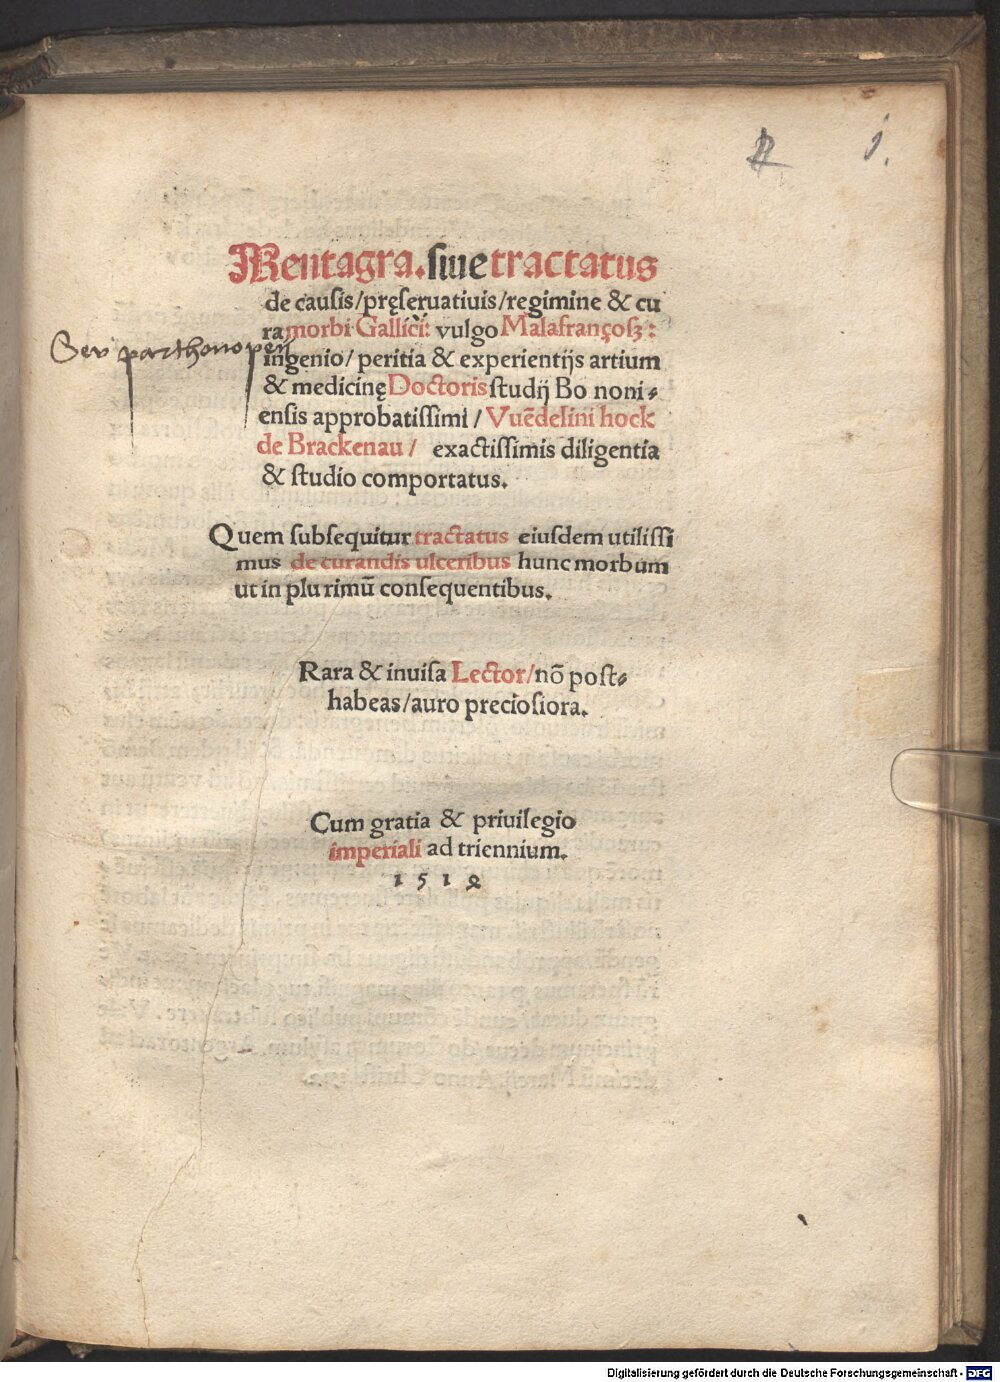 j.
Mentagra. siue tractatus
de causis/pręseruatiuis/regimine & cu
ra morbi Gallici: vulgo Malafrançosꝫ:
Seu parthonopeij
ingenio/ peritia & experientijs artium
& medicinę Doctoris studij Bo noni⸗
ensis approbatissimi / Vuẽdelini hock
de Brackenau / exactissimis diligentia
& studio comportatus.
Quem subsequitur tractatus eiusdem utilissi
mus de curandis ulceribus hunc morbum
ut in plurimũ consequentibus.
Rara & inuisa Lector/nõ post⸗
habeas/auro preciosiora.
Cum gratia & priuilegio
imperiali ad triennium.
Digitalisierung gefördert durch die Deutsche Forschungsgemeinschaft - DFG